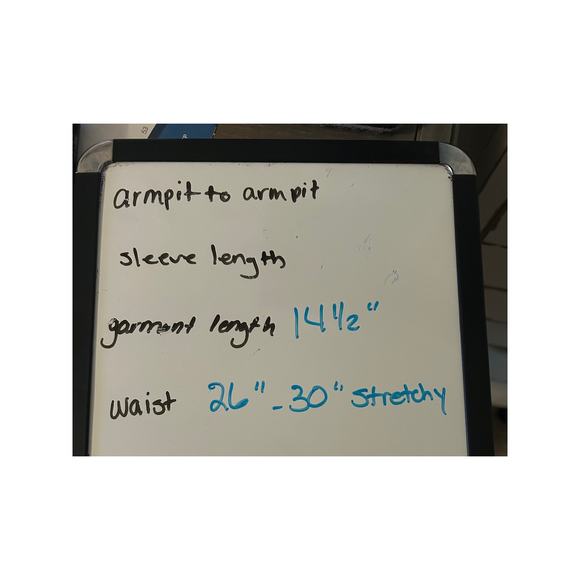 armpit to armpit
sleeve length
garment length 14 1/2"
waist 26" - 30" stretchy
53